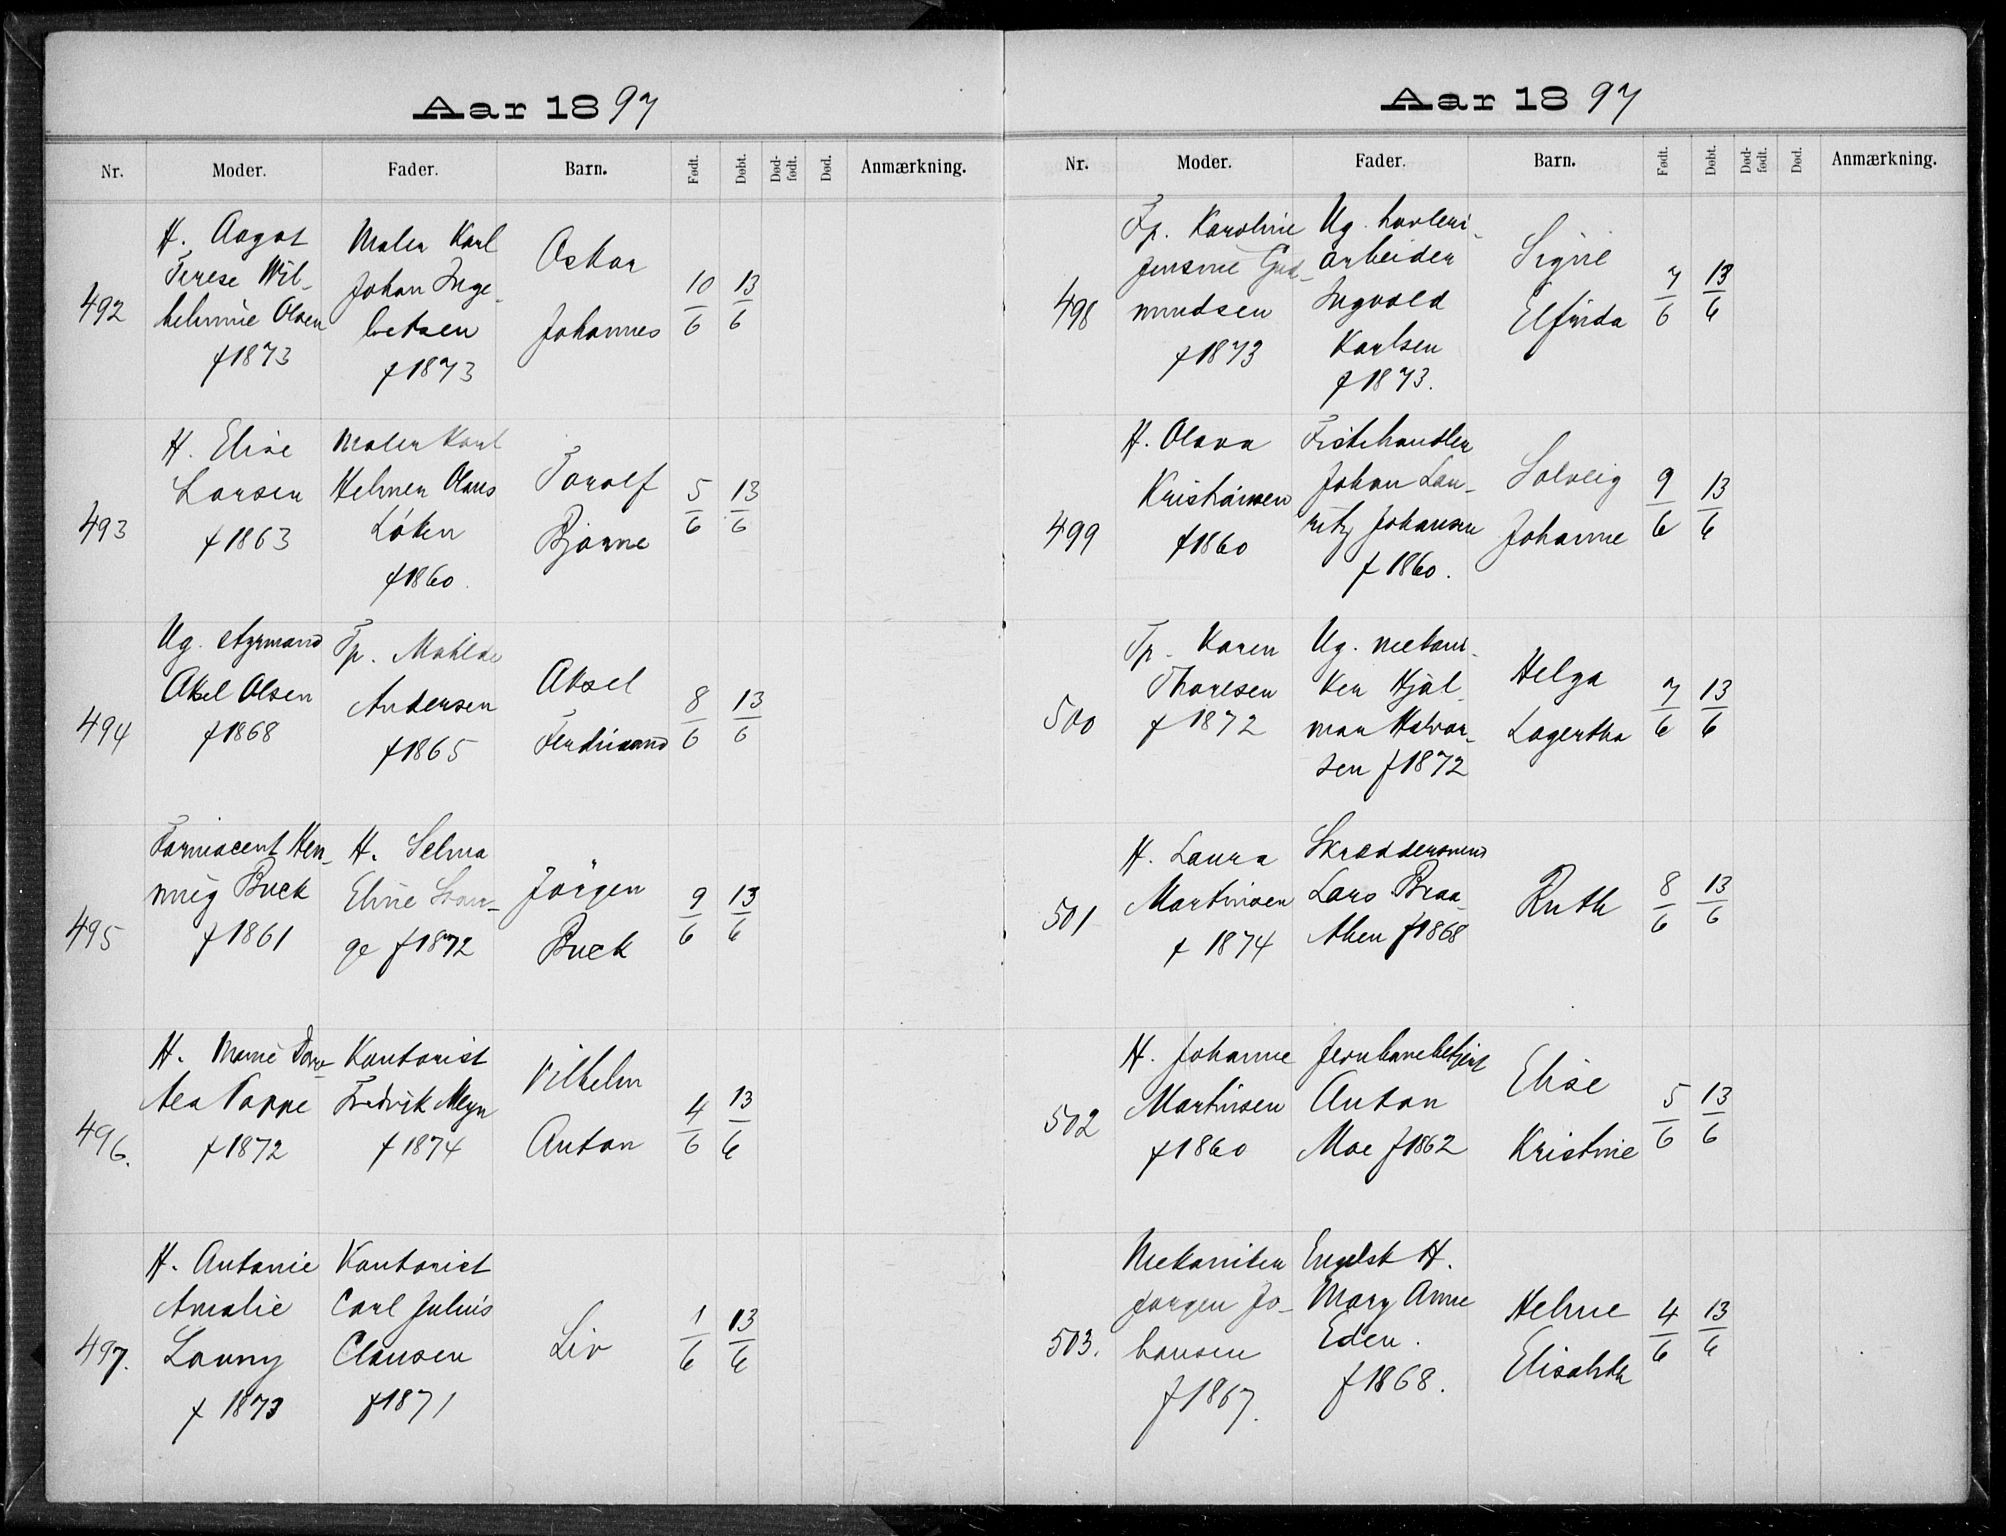 Aar 1897
Nr. Moder. Fader. Barn. Født. Døbt. Død-født. Død. Anmærkning.
492
H. Aagot
Terese Wil-
helmine Olsen
f 1873
Maler Karl
Johan Inge-
bretsen
f 1873
Oskar
Johannes
10/6 13/6
493
H. Elise
Larsen
f 1863
Maler Karl
Helmer Olaus
Løken
f 1860.
Torolf
Bjarne
5/6 13/6
494
Ug. styrmand
Aksel Olsen
f 1868
Tp. Mathilde
Andersen
f 1865
Aksel
Ferdinand
8/6 13/6
495
Farmacent Hen-
nig Buck
f 1861
H. Selma
Eline Stan-
ge f 1872
Jörgen
Buck
9/6 13/6
496.
H. Marie Doro-
tea Pappe
f 1872
Kontorist
Fredrik Meyn
f 1874
Vilhelm
Anton
4/6 13/6
497.
H. Antonie
Amalie
Lanny
f 1873
Kontorist
Carl Julius
Clausen
f 1871
Liv
1/6 13/6
Aar 1897
Nr. Moder. Fader. Barn. Født. Døbt. Død-født. Død. Anmærkning.
498
Tp. Karoline
Jensine Gud-
mundsen
f 1873
Ug. høvleri-
arbeider
Ingvald
Karlsen
f 1873.
Signe
Elfrida
7/6 13/6
499
H. Olava
Kristiansen
f 1860
Fiskehandler
Johan Lau-
ritz Johansen
f 1860.
Solveig
Johanne
9/6 13/6
500
Tp. Karen
Thoresen
f 1872
Ug. mekani-
ker Hjal-
mar Halvor-
sen f 1872
Helga
Lagertha
7/6 13/6
501
H. Laura
Martinsen
f 1874
Skræddersvend
Lars Braa-
then f 1868
Ruth
8/6 13/6
502
H. Johanne
Martinsen
f 1860
Jernbanebetjent
Anton
Moe f 1862
Elise
Kristine
5/6 13/6
503.
Mekaniker
Jørgen Jo-
hansen
f 1867.
Engelsk H.
Mary Anne
Eden.
f 1868.
Helene
Elisabeth
4/6 13/6